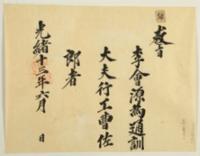 教旨
李會源為通訓
大夫行工曹佐
郎者
光緒十三年六月 日